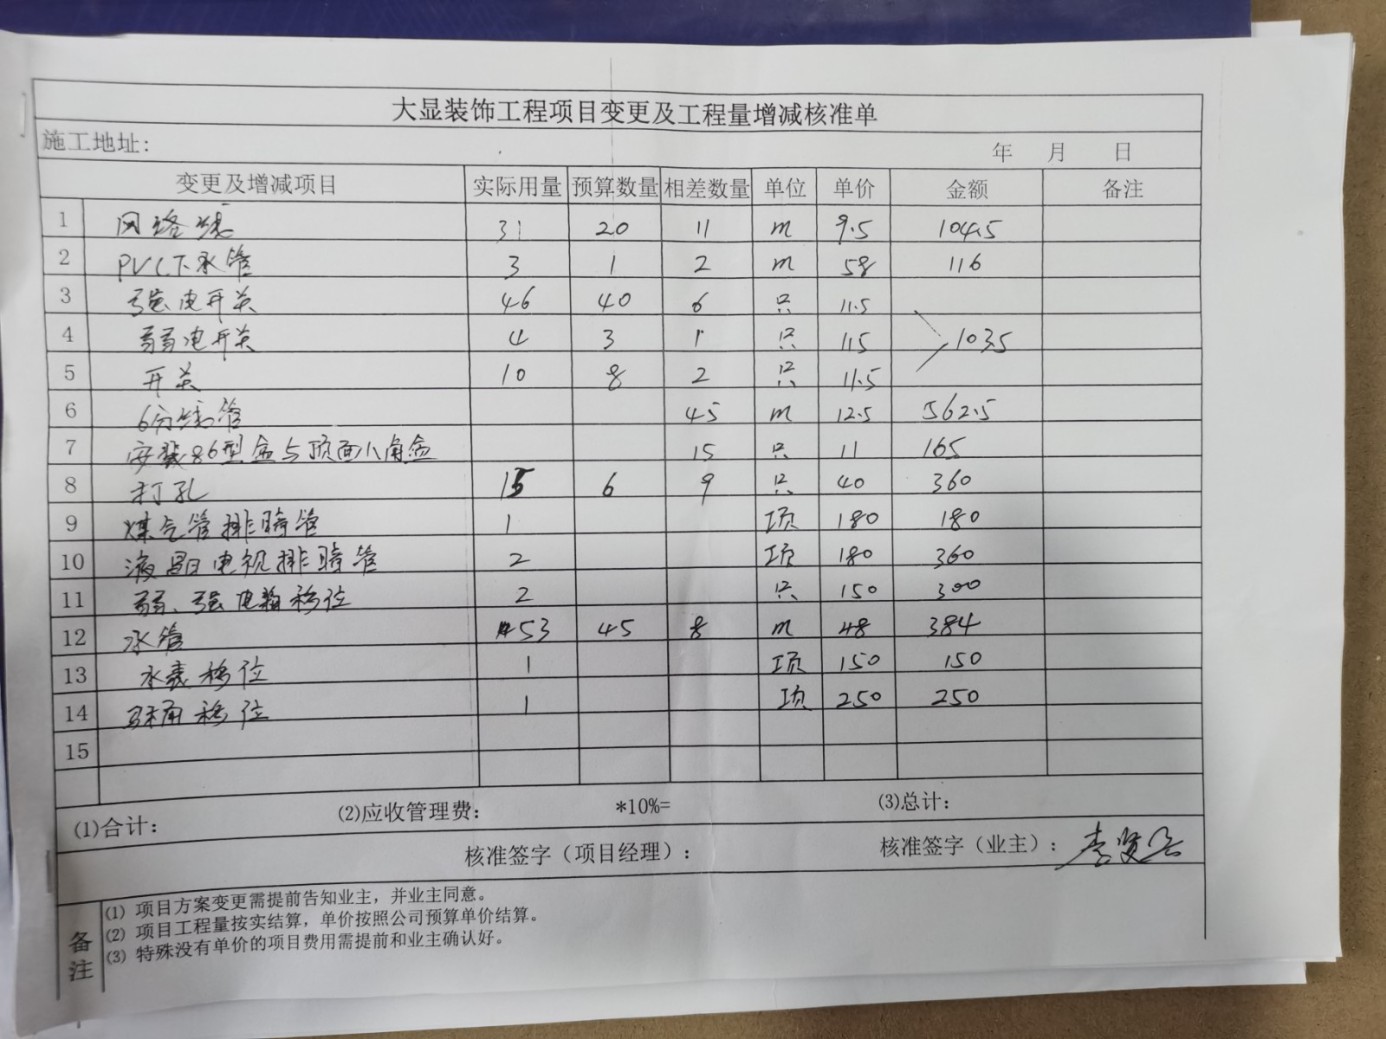 大显装饰工程项目变更及工程量增减核准单
施工地址: 年 月 日
变更及增减项目 实际用量 预算数量 相差数量 单位 单价 金额 备注
1 网络线 31 20 11 m 9.5 104.5
2 PVC下水管 3 1 2 m 58 116
3 强电开关 46 40 6 只 11.5
4 弱电开关 4 3 1 只 11.5 103.5
5 开关 10 8 2 只 11.5
6 6分线管 45 m 12.5 562.5
7 安装86型盒与顶面八角盒 15 只 11 165
8 打孔 15 6 9 只 40 360
9 煤气管排暗管 1 项 180 180
10 液晶电视排暗管 2 项 180 360
11 弱、强电箱移位 2 只 150 300
12 水管 53 45 8 m 48 384
13 水表移位 1 项 150 150
14 移位 1 项 250 250
15
(1)合计: (2)应收管理费: *10%= (3)总计:
核准签字(项目经理): 核准签字(业主):
备注
(1) 项目方案变更需提前告知业主，并业主同意。
(2) 项目工程量按实结算，单价按照公司预算单价结算。
(3) 特殊没有单价的项目费用需提前和业主确认好。